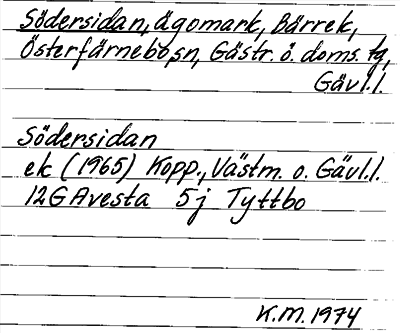 Södersidan, ägomark, Bärrek,
Österfärnebo sn, Gästr. ö. doms. tg,
Gävl.l.
Södersidan
ek (1965) Kopp., Västm. o. Gävl.l.
12G Avesta 5j Tyttbo
K.M. 1974